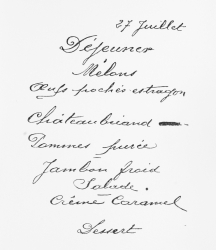 27 Juillet
Déjeuner
Mélons
Œufs pochés estragon
Châteaubriand
Pommes purée
Jambon froid
Salade.
Crème Caramel
Dessert